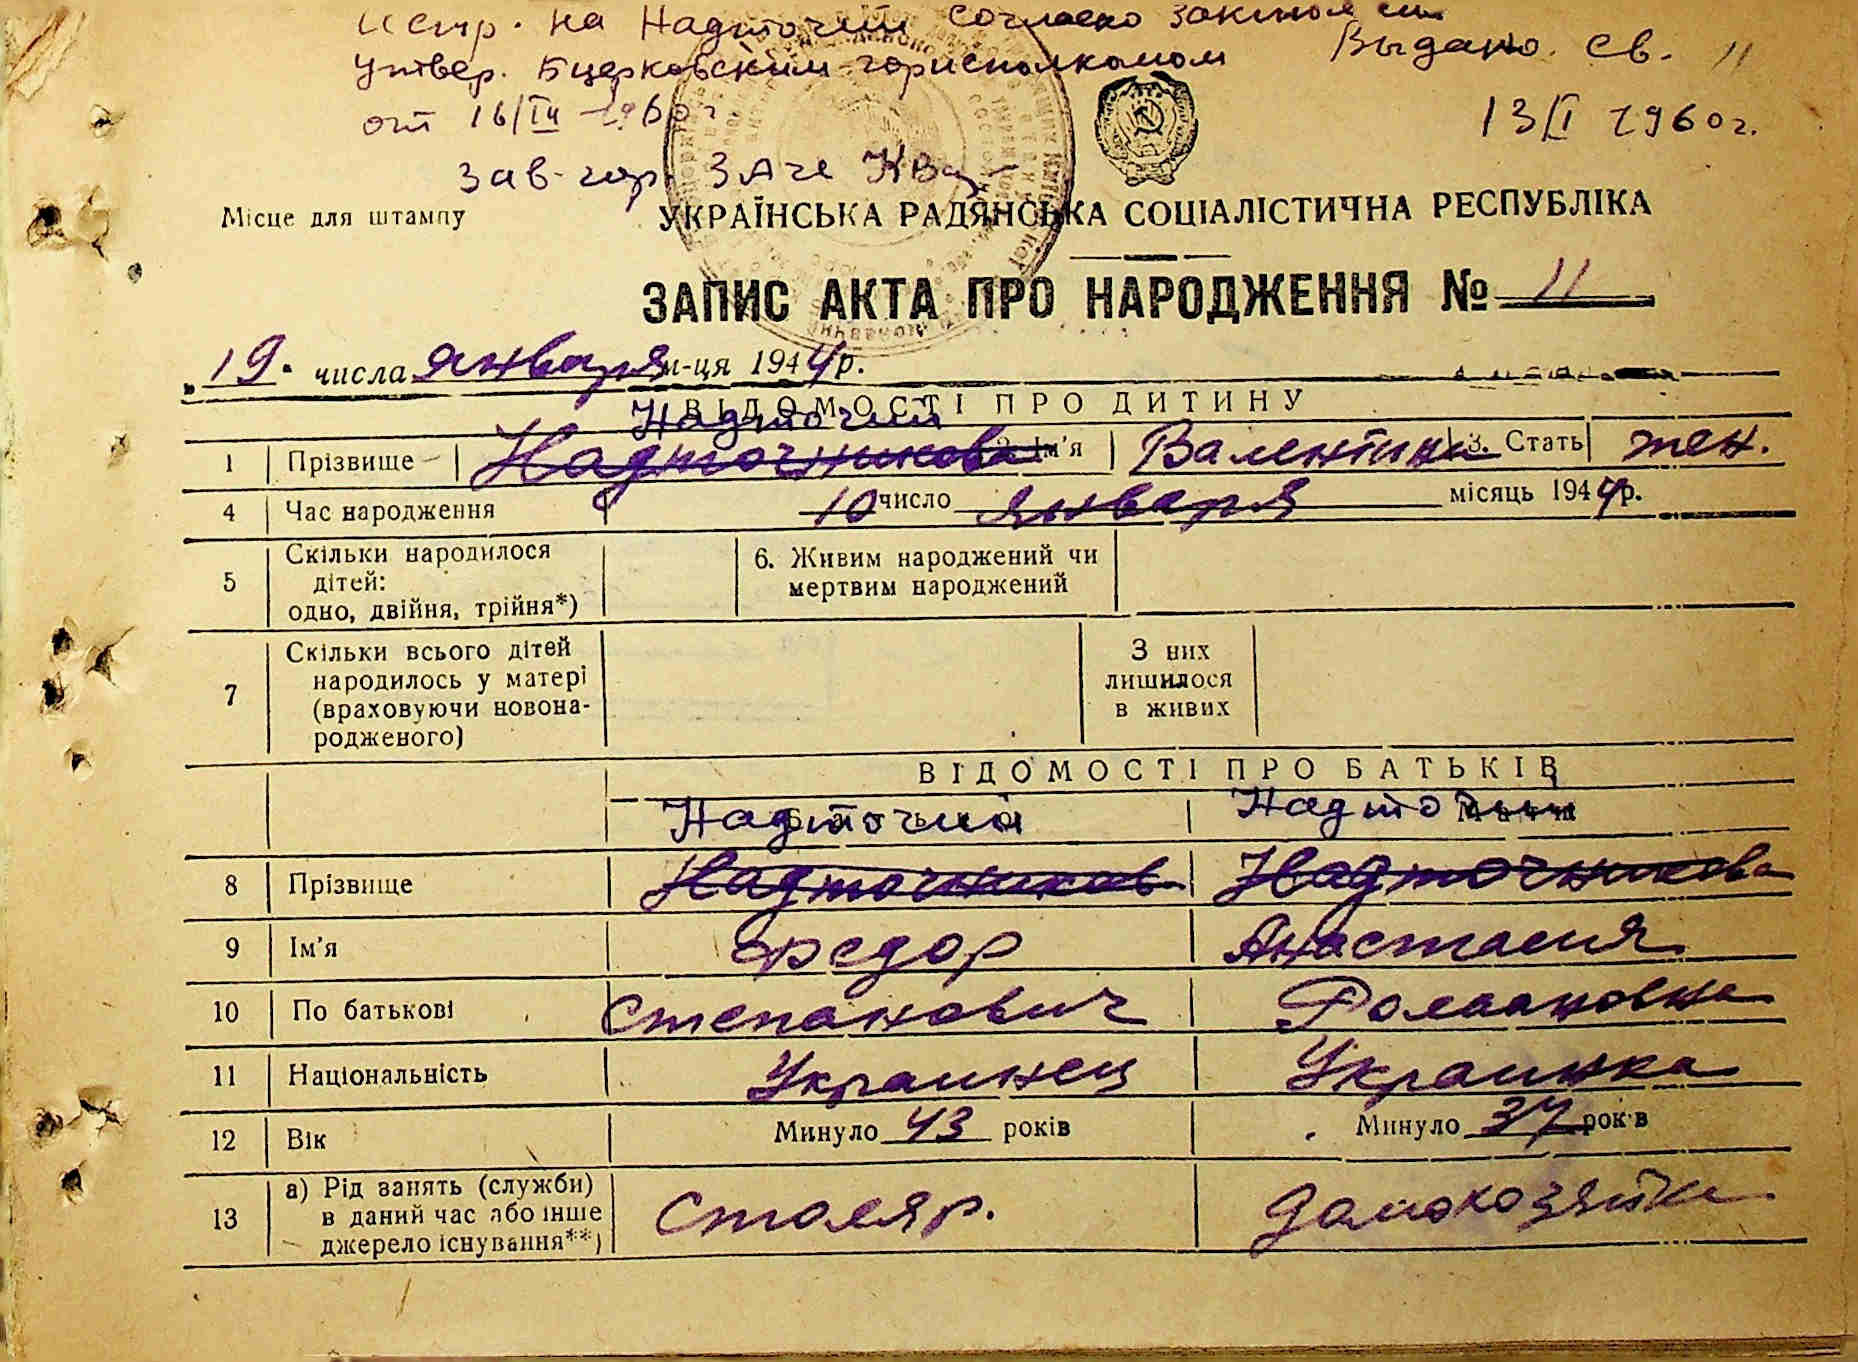 Испр. на Надточий согласно заключения
Утвер. Бцерковским горисполкомом
Выдано св. 11
от 16/IV-1960 г
13/I 1960 г.
Зав-гор. ЗАГС
Місце для штампу
УКРАЇНСЬКА РАДЯНСЬКА СОЦІАЛІСТИЧНА РЕСПУБЛІКА
ЗАПИС АКТА ПРО НАРОДЖЕННЯ № 11
„19" числа января м-ця 1944 р.
ВІДОМОСТІ ПРО ДИТИНУ
Надточий
1 Прізвище Надточникова 2. Ім'я Валентина 3. Стать жен.
4 Час народження 10 число января місяць 1944 р.
5 Скільки народилося дітей: одно, двійня, трійня*) 6. Живим народжений чи мертвим народжений
7 Скільки всього дітей народилось у матері (враховуючи новонародженого) З них лишилося в живих
ВІДОМОСТІ ПРО БАТЬКІВ
Надточий Надточий
8 Прізвище Надточников Надточникова
9 Ім'я Федор Анастасия
10 По батькові Степанович Романовна
11 Національність Украинец Украинка
12 Вік Минуло 43 років Минуло 37 рок в
13 а) Рід занять (служби) в даний час або інше джерело існування**) Столяр. Домохозяйка